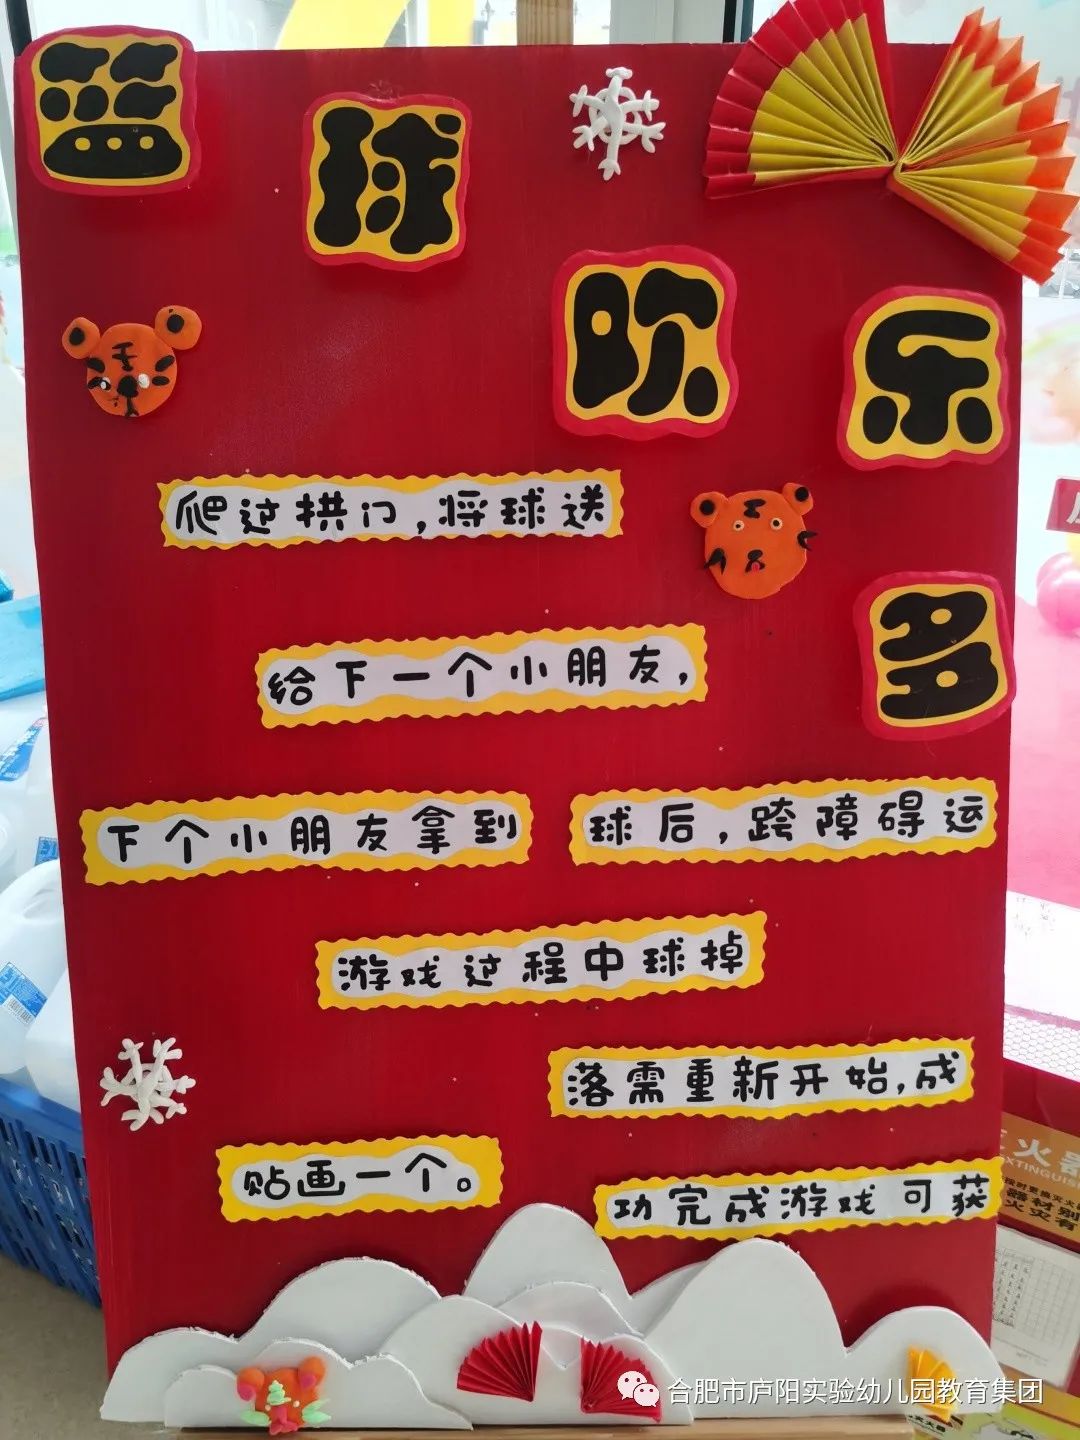 篮球欢乐多
爬过拱门,将球送
给下一个小朋友,
下个小朋友拿到
球后,跨障碍运
游戏过程中球掉
落需重新开始,成
功完成游戏可获
贴画一个。
合肥市庐阳实验幼儿园教育集团